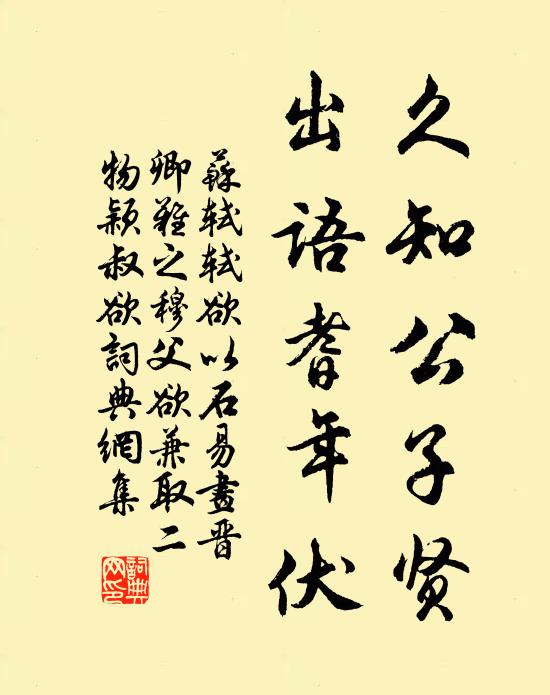 久知公子贤
出语耆年伏
苏轼轼欲以石易画晋
卿难之穆父欲兼取二
物颖叔欲词典网集
词典网印